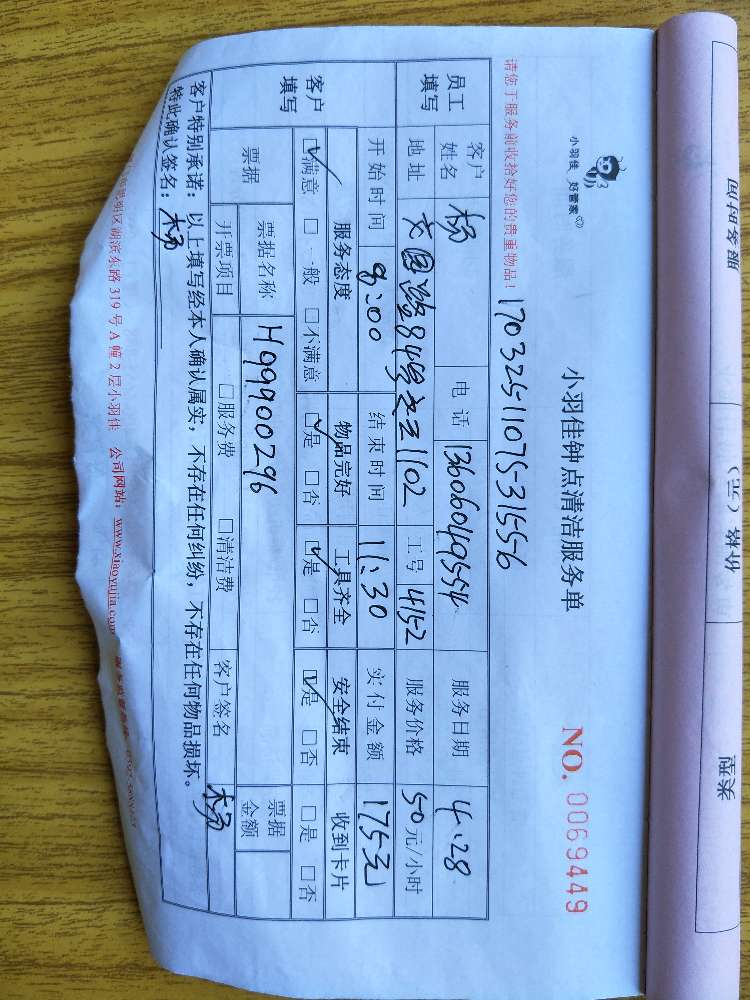 小羽佳 好管家
小羽佳钟点清洁服务单
NO. 0069449
17032511075-31556
请您于服务前收拾好您的贵重物品!
员工填写
客户姓名 杨 电话 13606049554 服务日期 4.28
地址 文园路84号之三1102 工号 4152 服务价格 50元/小时
开始时间 8:00 结束时间 11:30 实付金额 175元
客户填写
服务态度 物品完好 工具齐全 安全结束 收到卡片
☑满意 □一般 □不满意 ☑是 □否 ☑是 □否 ☑是 □否 □是 □否
票据 票据名称 H99900296 票据金额
开票项目 □服务费 □清洁费 客户签名 杨
客户特别承诺：以上填写经本人确认属实，不存在任何纠纷，不存在任何物品损坏。
特此确认签名：杨
明区湖滨东路 319 号 A 幢 2 层小羽佳 公司网站：www.xiaoyujia.com